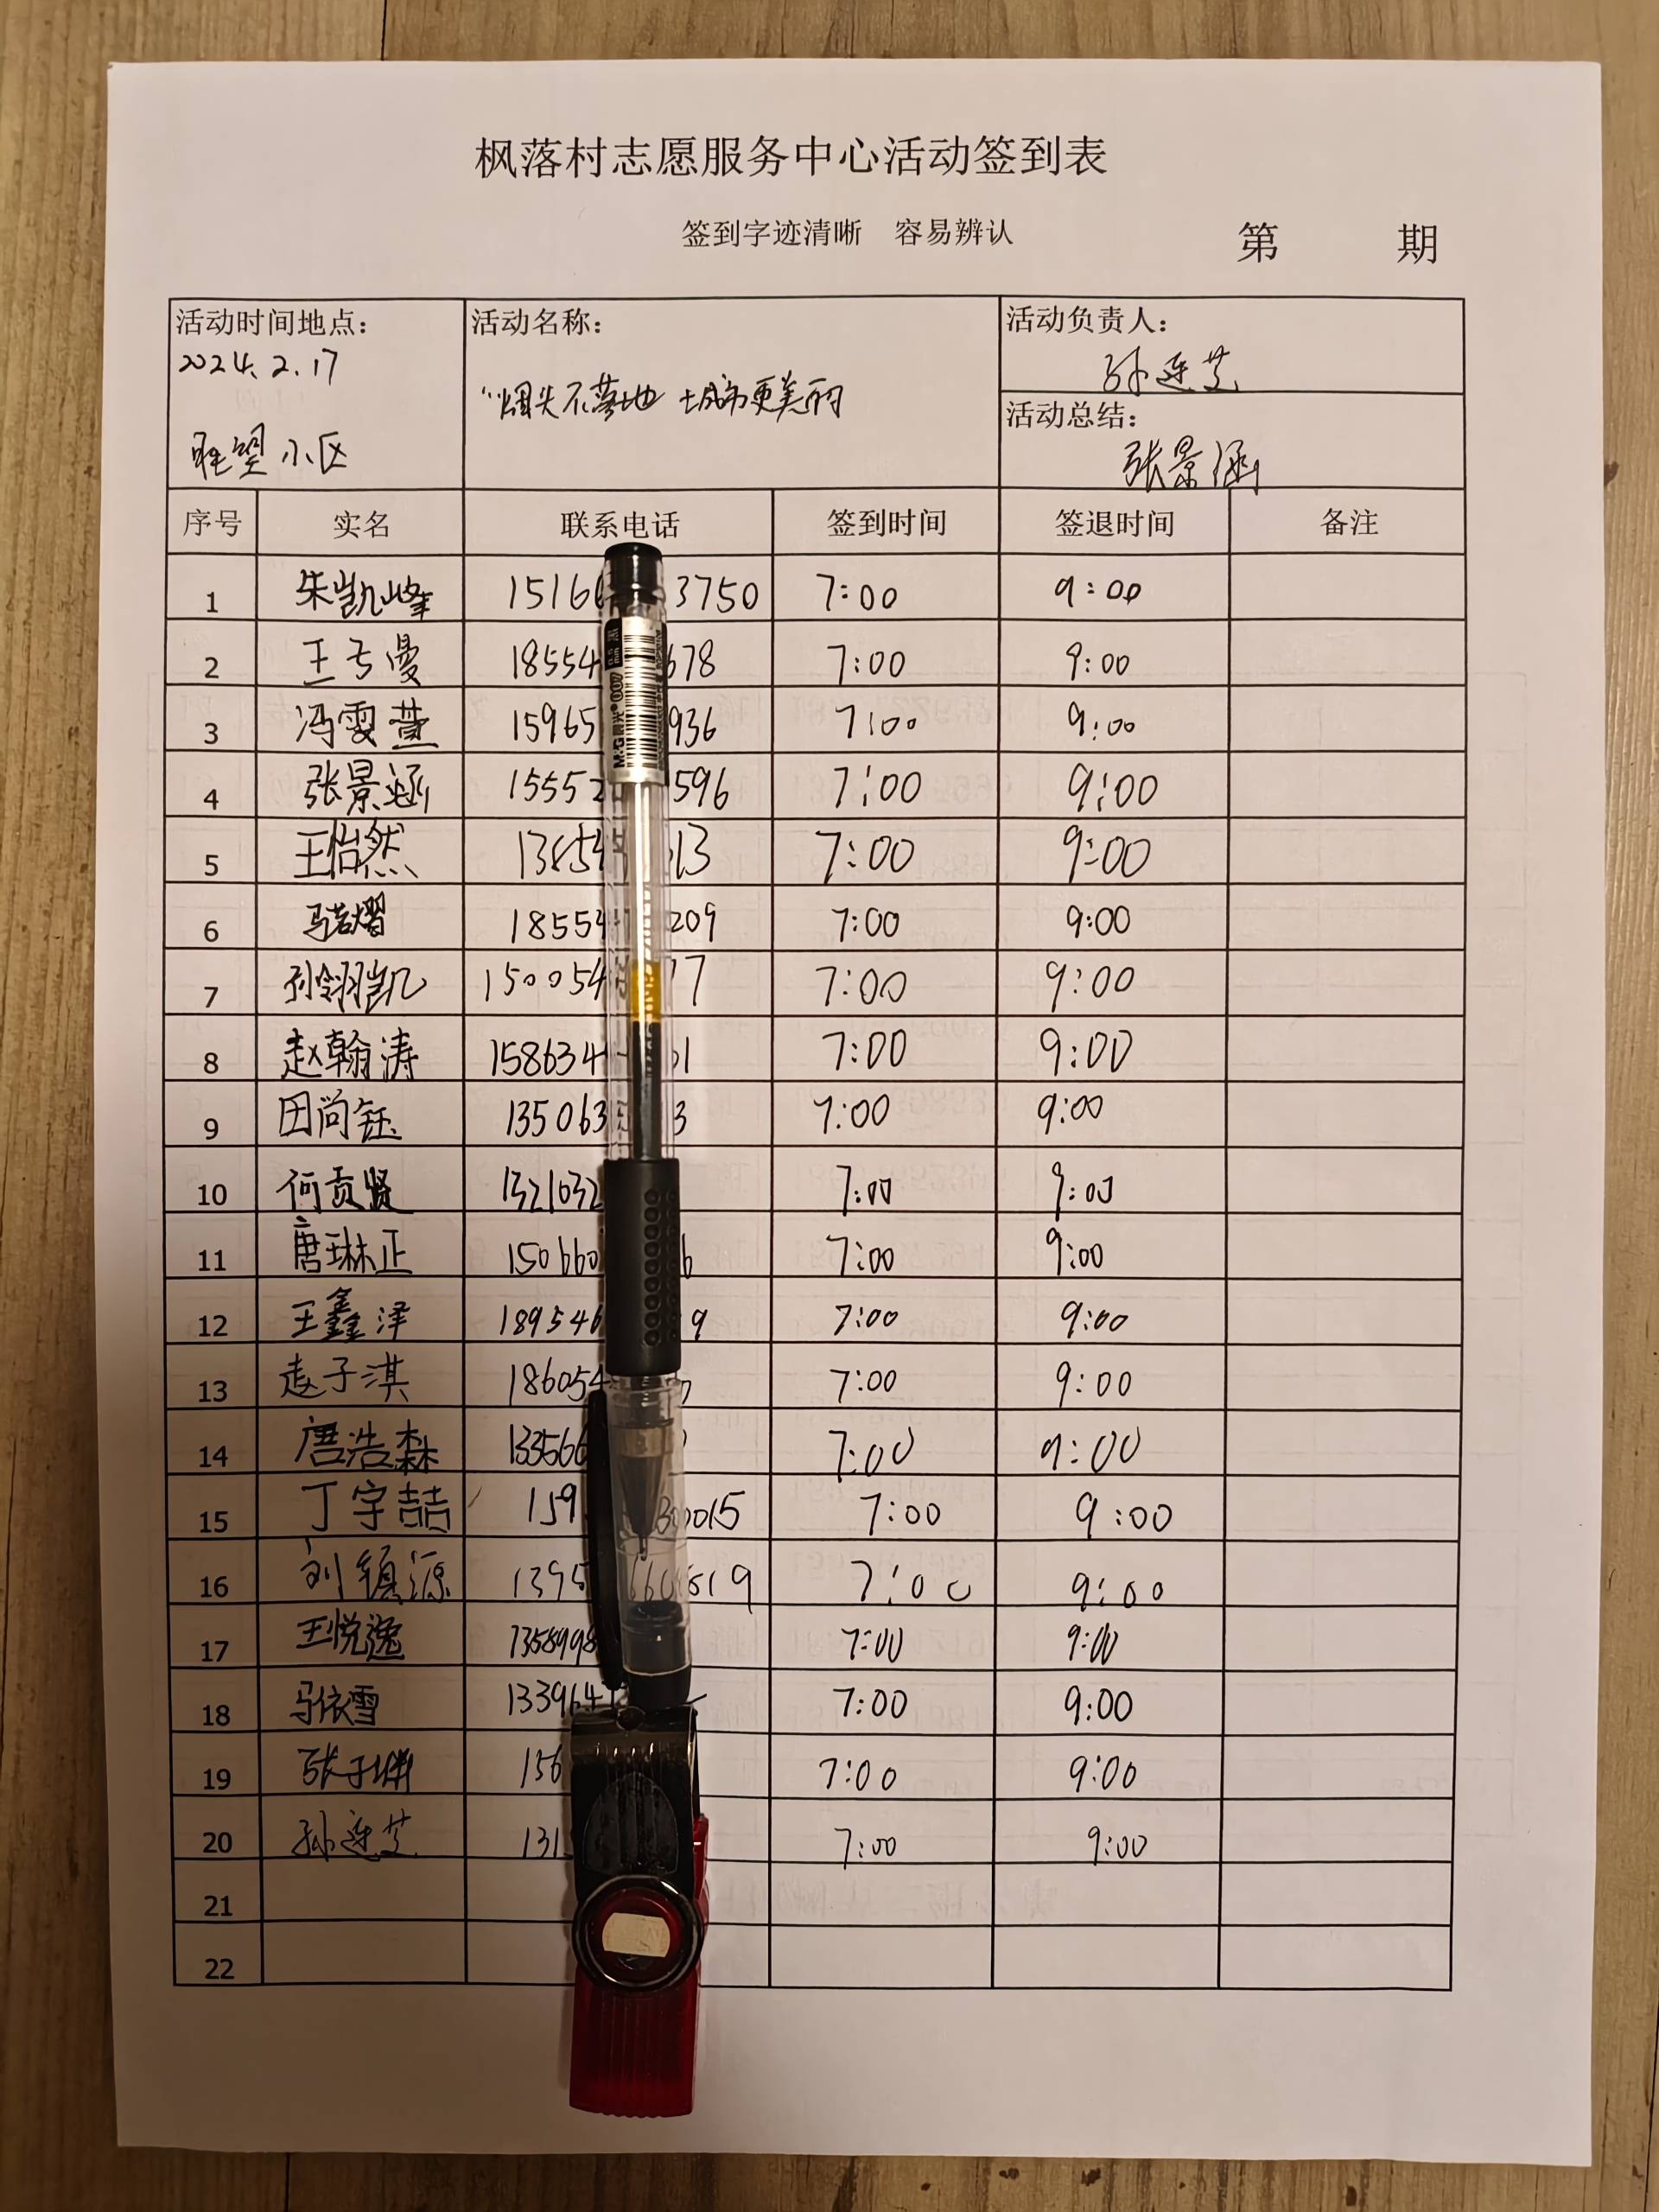 枫落村志愿服务中心活动签到表
签到字迹清晰 容易辨认
第 期
活动时间地点:
2024.2.17
眶望小区
活动名称:
"烟头不落地 城市更美丽
活动负责人:
孙连芝
活动总结:
张景涵
序号 实名 联系电话 签到时间 签退时间 备注
1 朱凯峰 1516 3750 7:00 9:00
2 王曼 18554 678 7:00 9:00
3 冯雯萱 15965 936 7:00 9:00
4 张景涵 15552 596 7:00 9:00
5 王怡然 13854 13 7:00 9:00
6 马若熠 18554 209 7:00 9:00
7 孙翎凯 150054 77 7:00 9:00
8 赵翰涛 158634 1 7:00 9:00
9 田尚钰 135063 3 7:00 9:00
10 何贡贤 1321632 7:00 9:00
11 唐琳正 150660 6 7:00 9:00
12 王鑫泽 189546 9 7:00 9:00
13 赵子淇 186054 7:00 9:00
14 唐浩森 133566 7:00 9:00
15 丁宇喆 159 30015 7:00 9:00
16 刘镇源 1395 19 7:00 9:00
17 王悦逸 1358998 7:00 9:00
18 马依雪 133964 7:00 9:00
19 张子 156 7:00 9:00
20 孙连芝 131 7:00 9:00
21
22
M&G晨光